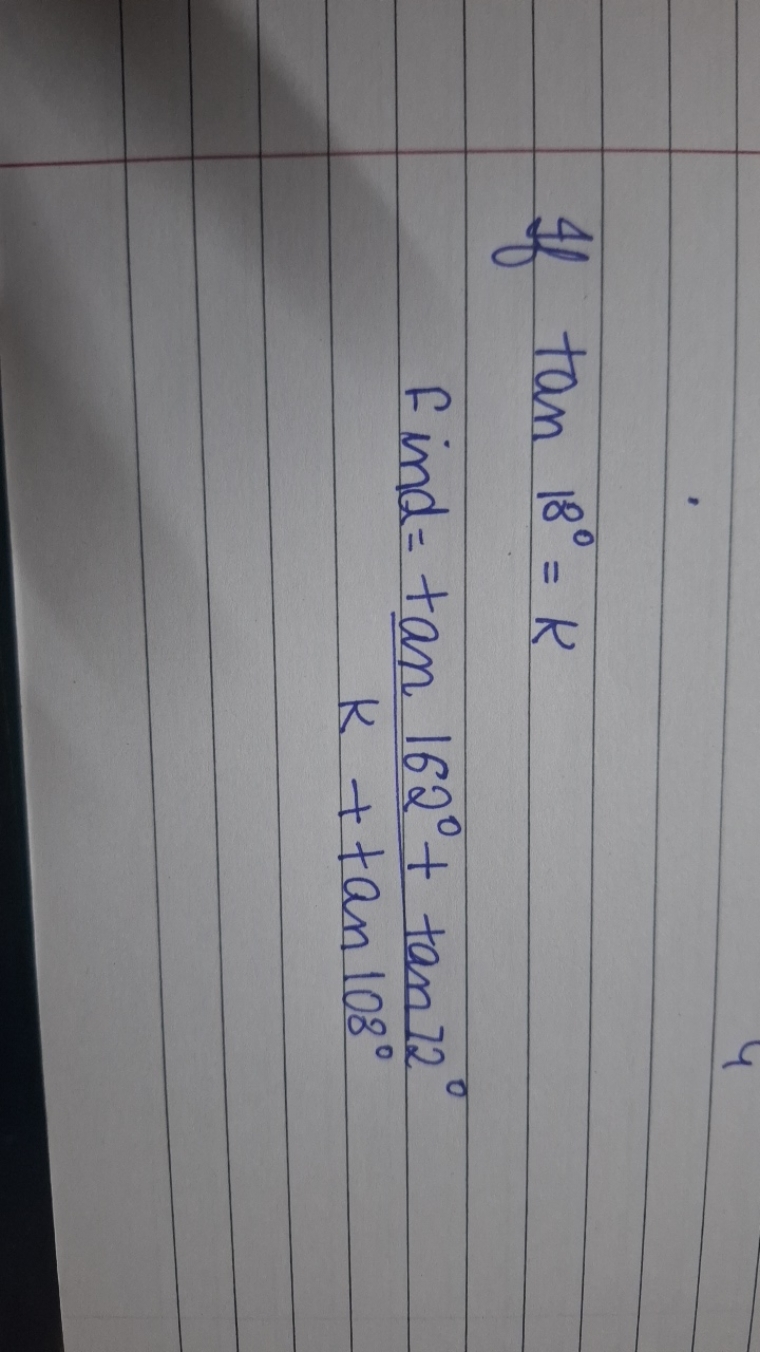 If tan 18° = K
Find = tan 162° + tan 72°
K + tan 108°